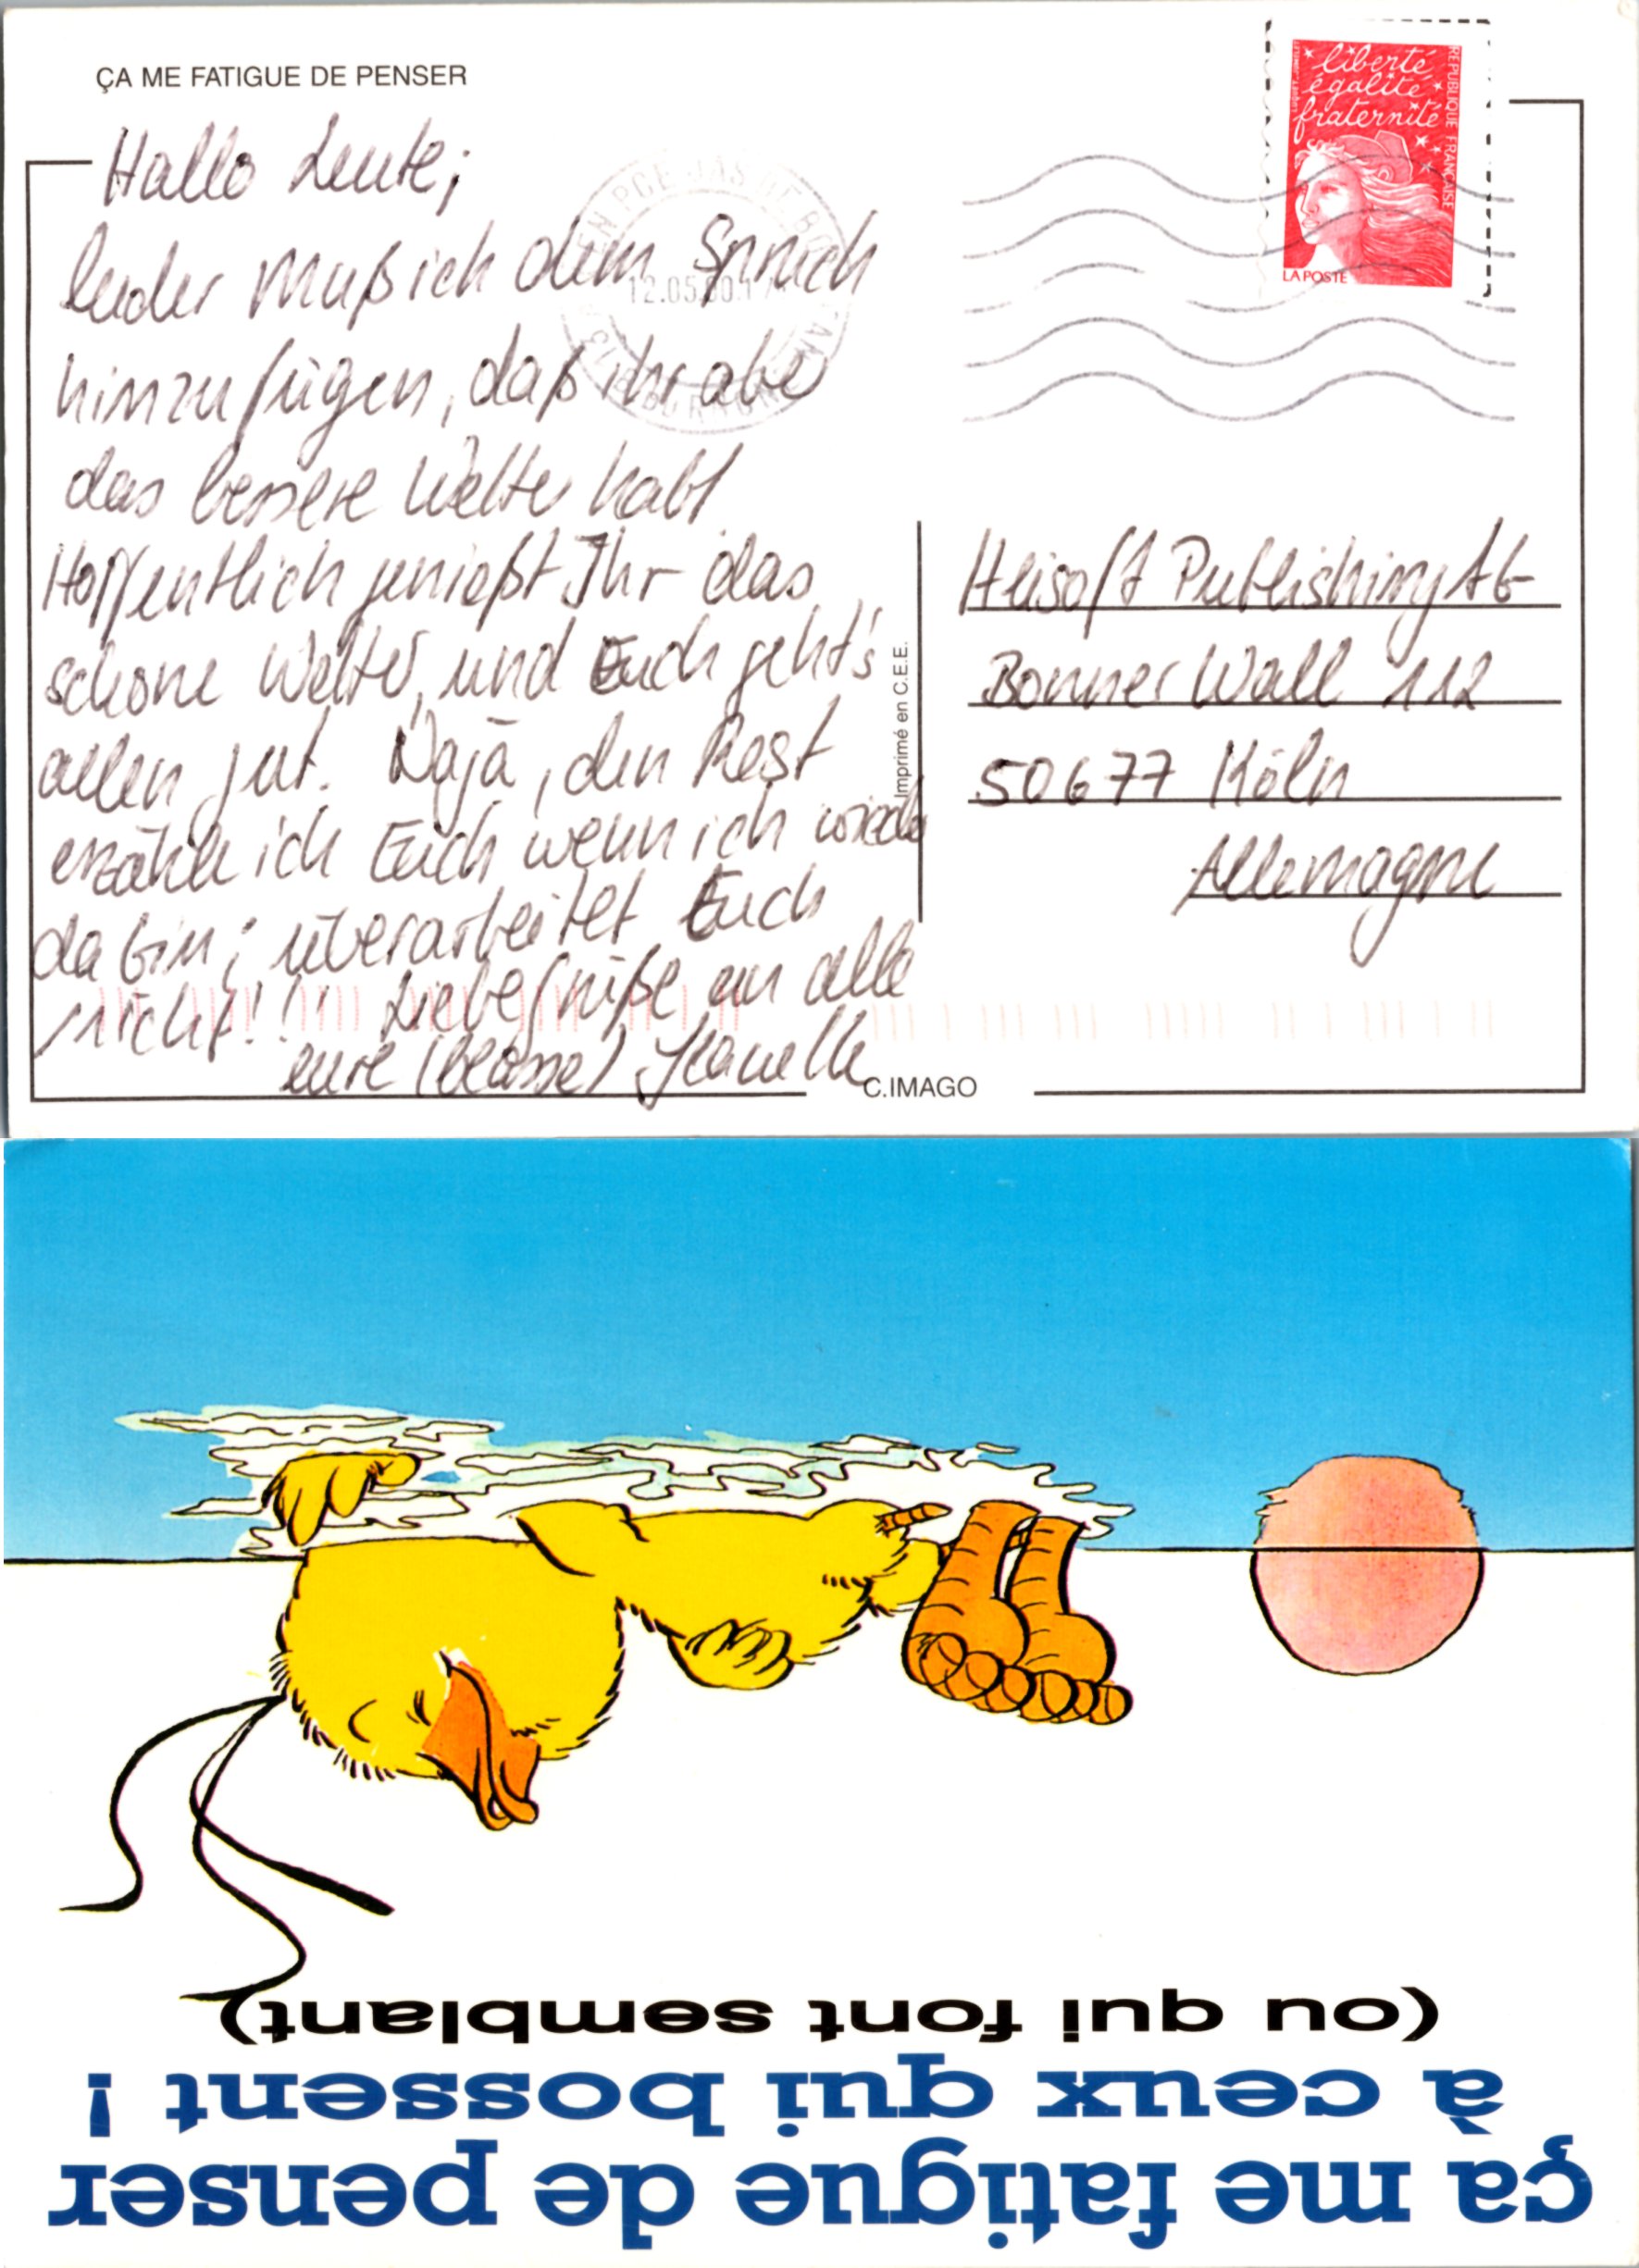 ÇA ME FATIGUE DE PENSER
liberté
égalité
fraternité
RÉPUBLIQUE FRANÇAISE
LA POSTE
12.05.00
Hallo Leute;
leider muß ich dem Spruch
hinzufügen, daß ihr aber
das bessere Wetter habt
Hoffentlich genießt Ihr das
schöne Wetter, und Euch geht's
allen gut. Naja, den Rest
erzähle ich Euch wenn ich wieder
da bin; überarbeitet Euch
nicht!!! Liebe Grüße an alle
eure
Imprimé en C.E.E.
Publishing AG
Bonner Wall 112
50677 Köln
Allemagne
C.IMAGO
ça me fatigue de penser
à ceux qui bossent !
(ou qui font semblant)